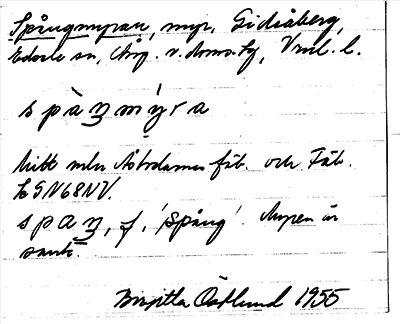 Spångmyran, myr, Gidiåberg,
Edsele sn, v. doms. Vnl. l.
s p à ȝ m ý r a
Mitt mlm fäb. och Fäb.
b5N68NV.
s p a ȝ, f, 'spång'. Myren är
sank.
Birgitta Östlund 1955